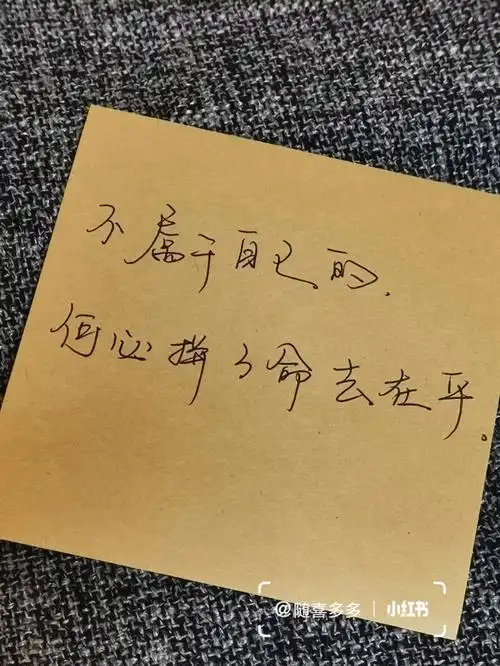 不属于自己的,
何必拼了命去在乎。
@随喜多多 | 小红书